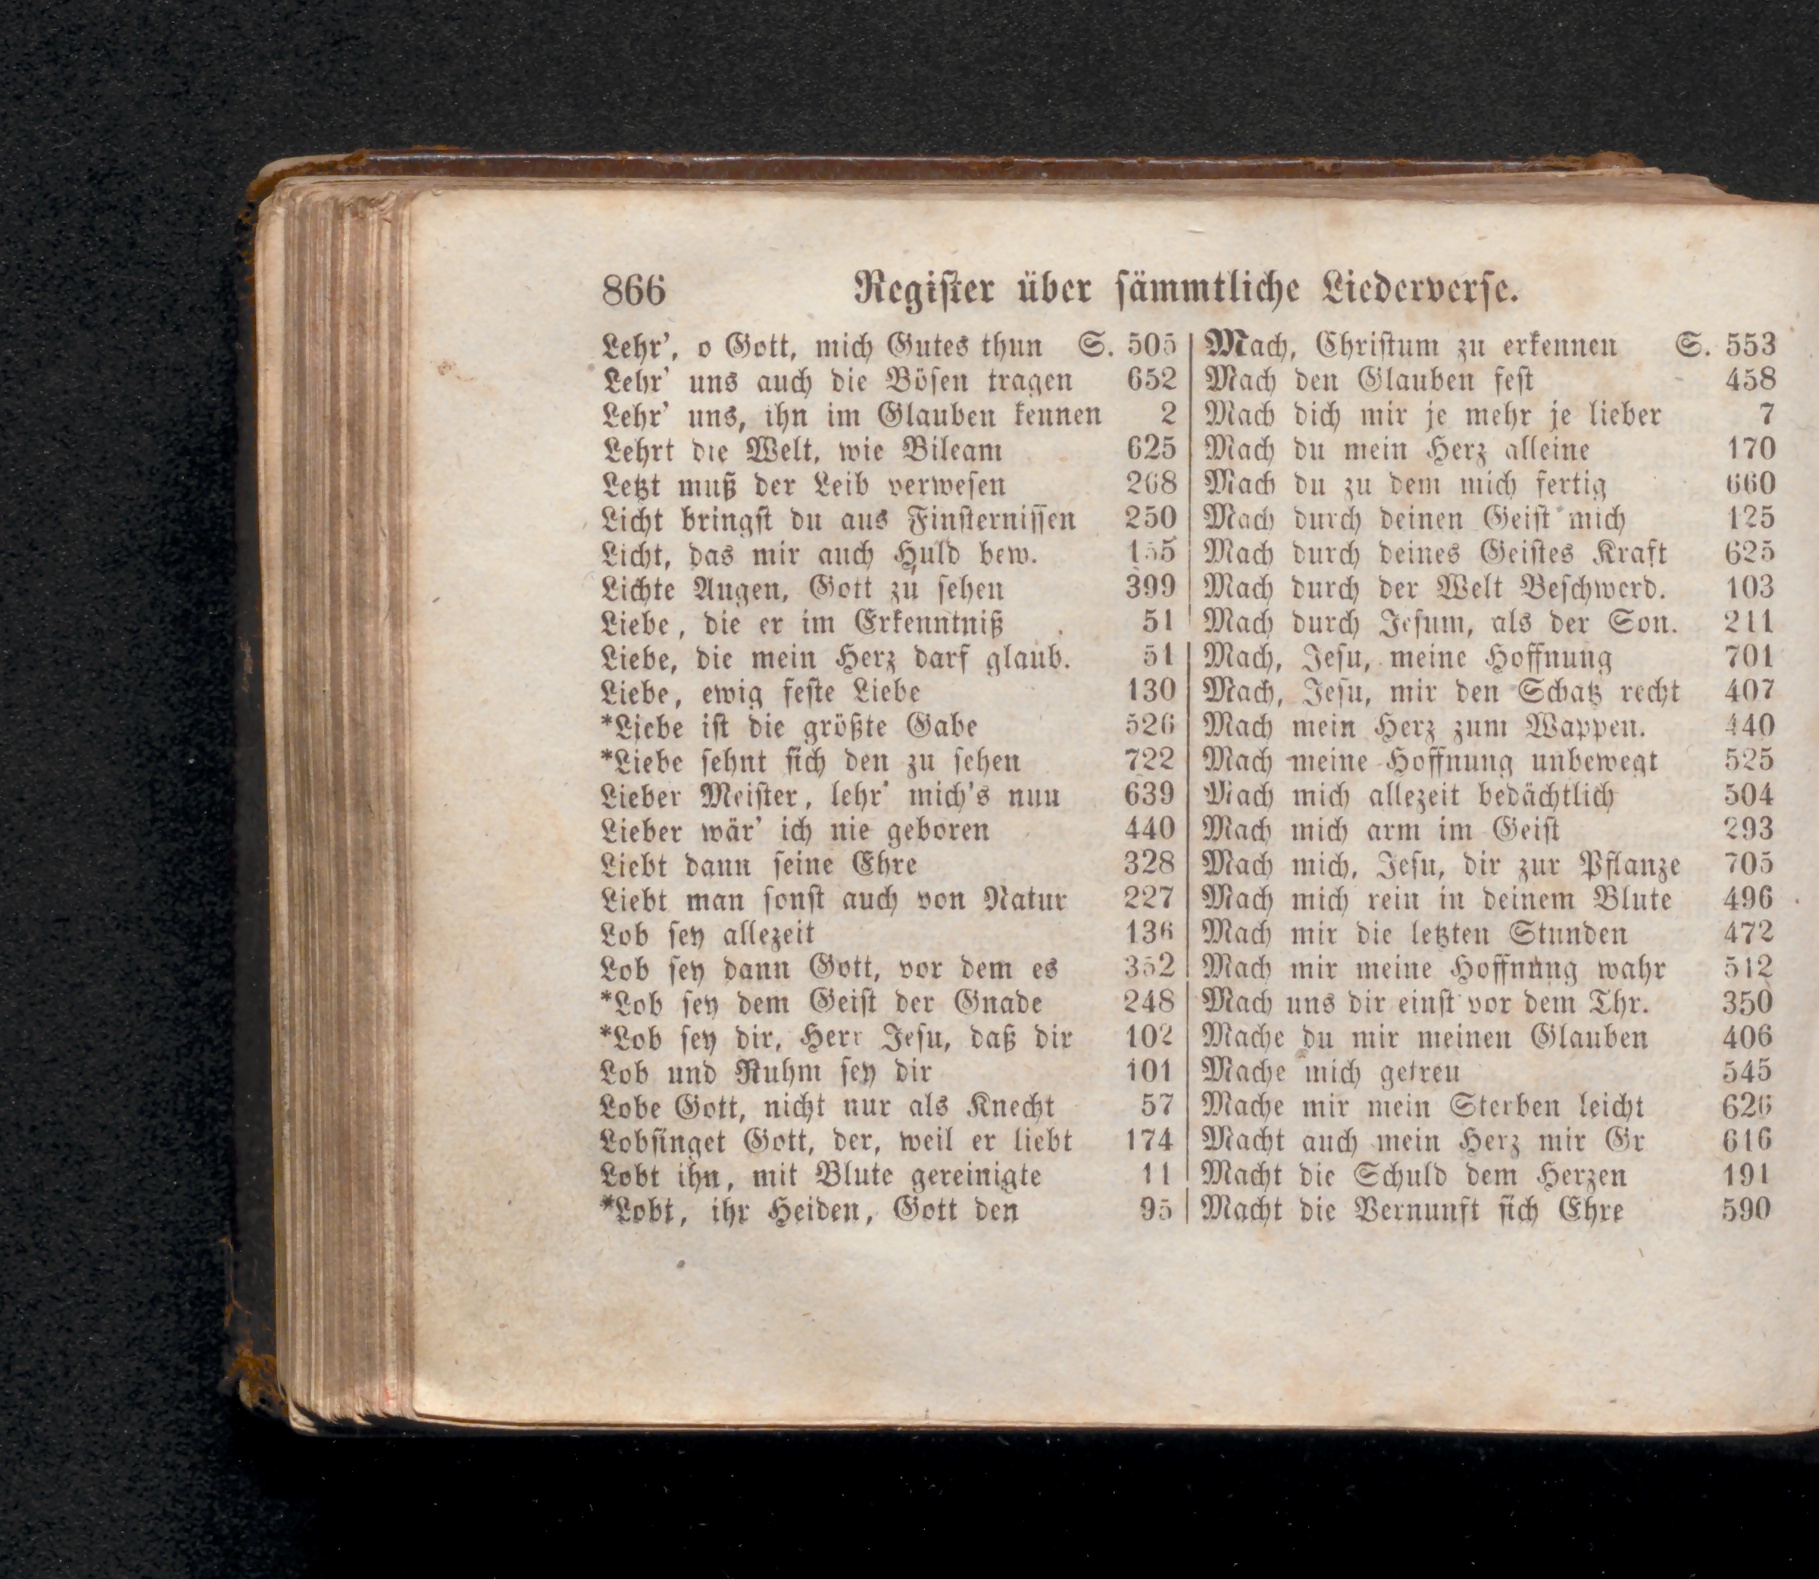 866 Register über sämmtliche Liederverse.
Lehr', o Gott, mich Gutes thun S. 505
Lehr' uns auch die Bösen tragen 652
Lehr' uns, ihn im Glauben kennen 2
Lehrt die Welt, wie Bileam 625
Letzt muß der Leib verwesen 268
Licht bringst du aus Finsternissen 250
Licht, das mir auch Huld bew. 155
Lichte Augen, Gott zu sehen 399
Liebe, die er im Erkenntniß 51
Liebe, die mein Herz darf glaub. 51
Liebe, ewig feste Liebe 130
*Liebe ist die größte Gabe 526
*Liebe sehnt sich den zu sehen 722
Lieber Meister, lehr' mich's nun 639
Lieber wär' ich nie geboren 440
Liebt dann seine Ehre 328
Liebt man sonst auch von Natur 227
Lob sey allezeit 136
Lob sey dann Gott, vor dem es 352
*Lob sey dem Geist der Gnade 248
*Lob sey dir, Herr Jesu, daß dir 102
Lob und Ruhm sey dir 101
Lobe Gott, nicht nur als Knecht 57
Lobsinget Gott, der, weil er liebt 174
Lobt ihn, mit Blute gereinigte 11
*Lobt, ihr Heiden, Gott den 95
Mach, Christum zu erkennen S. 553
Mach den Glauben fest 458
Mach dich mir je mehr je lieber 7
Mach du mein Herz alleine 170
Mach du zu dem mich fertig 660
Mach durch deinen Geist mich 125
Mach durch deines Geistes Kraft 625
Mach durch der Welt Beschwerd. 103
Mach durch Jesum, als der Son. 211
Mach, Jesu, meine Hoffnung 701
Mach, Jesu, mir den Schatz recht 407
Mach mein Herz zum Wappen. 440
Mach meine Hoffnung unbewegt 525
Mach mich allezeit bedächtlich 504
Mach mich arm im Geist 293
Mach mich, Jesu, dir zur Pflanze 705
Mach mich rein in deinem Blute 496
Mach mir die letzten Stunden 472
Mach mir meine Hoffnung wahr 512
Mach uns dir einst vor dem Thr. 350
Mache du mir meinen Glauben 406
Mache mich getreu 545
Mache mir mein Sterben leicht 626
Macht auch mein Herz mir Gr 616
Macht die Schuld dem Herzen 191
Macht die Vernunft sich Ehre 590